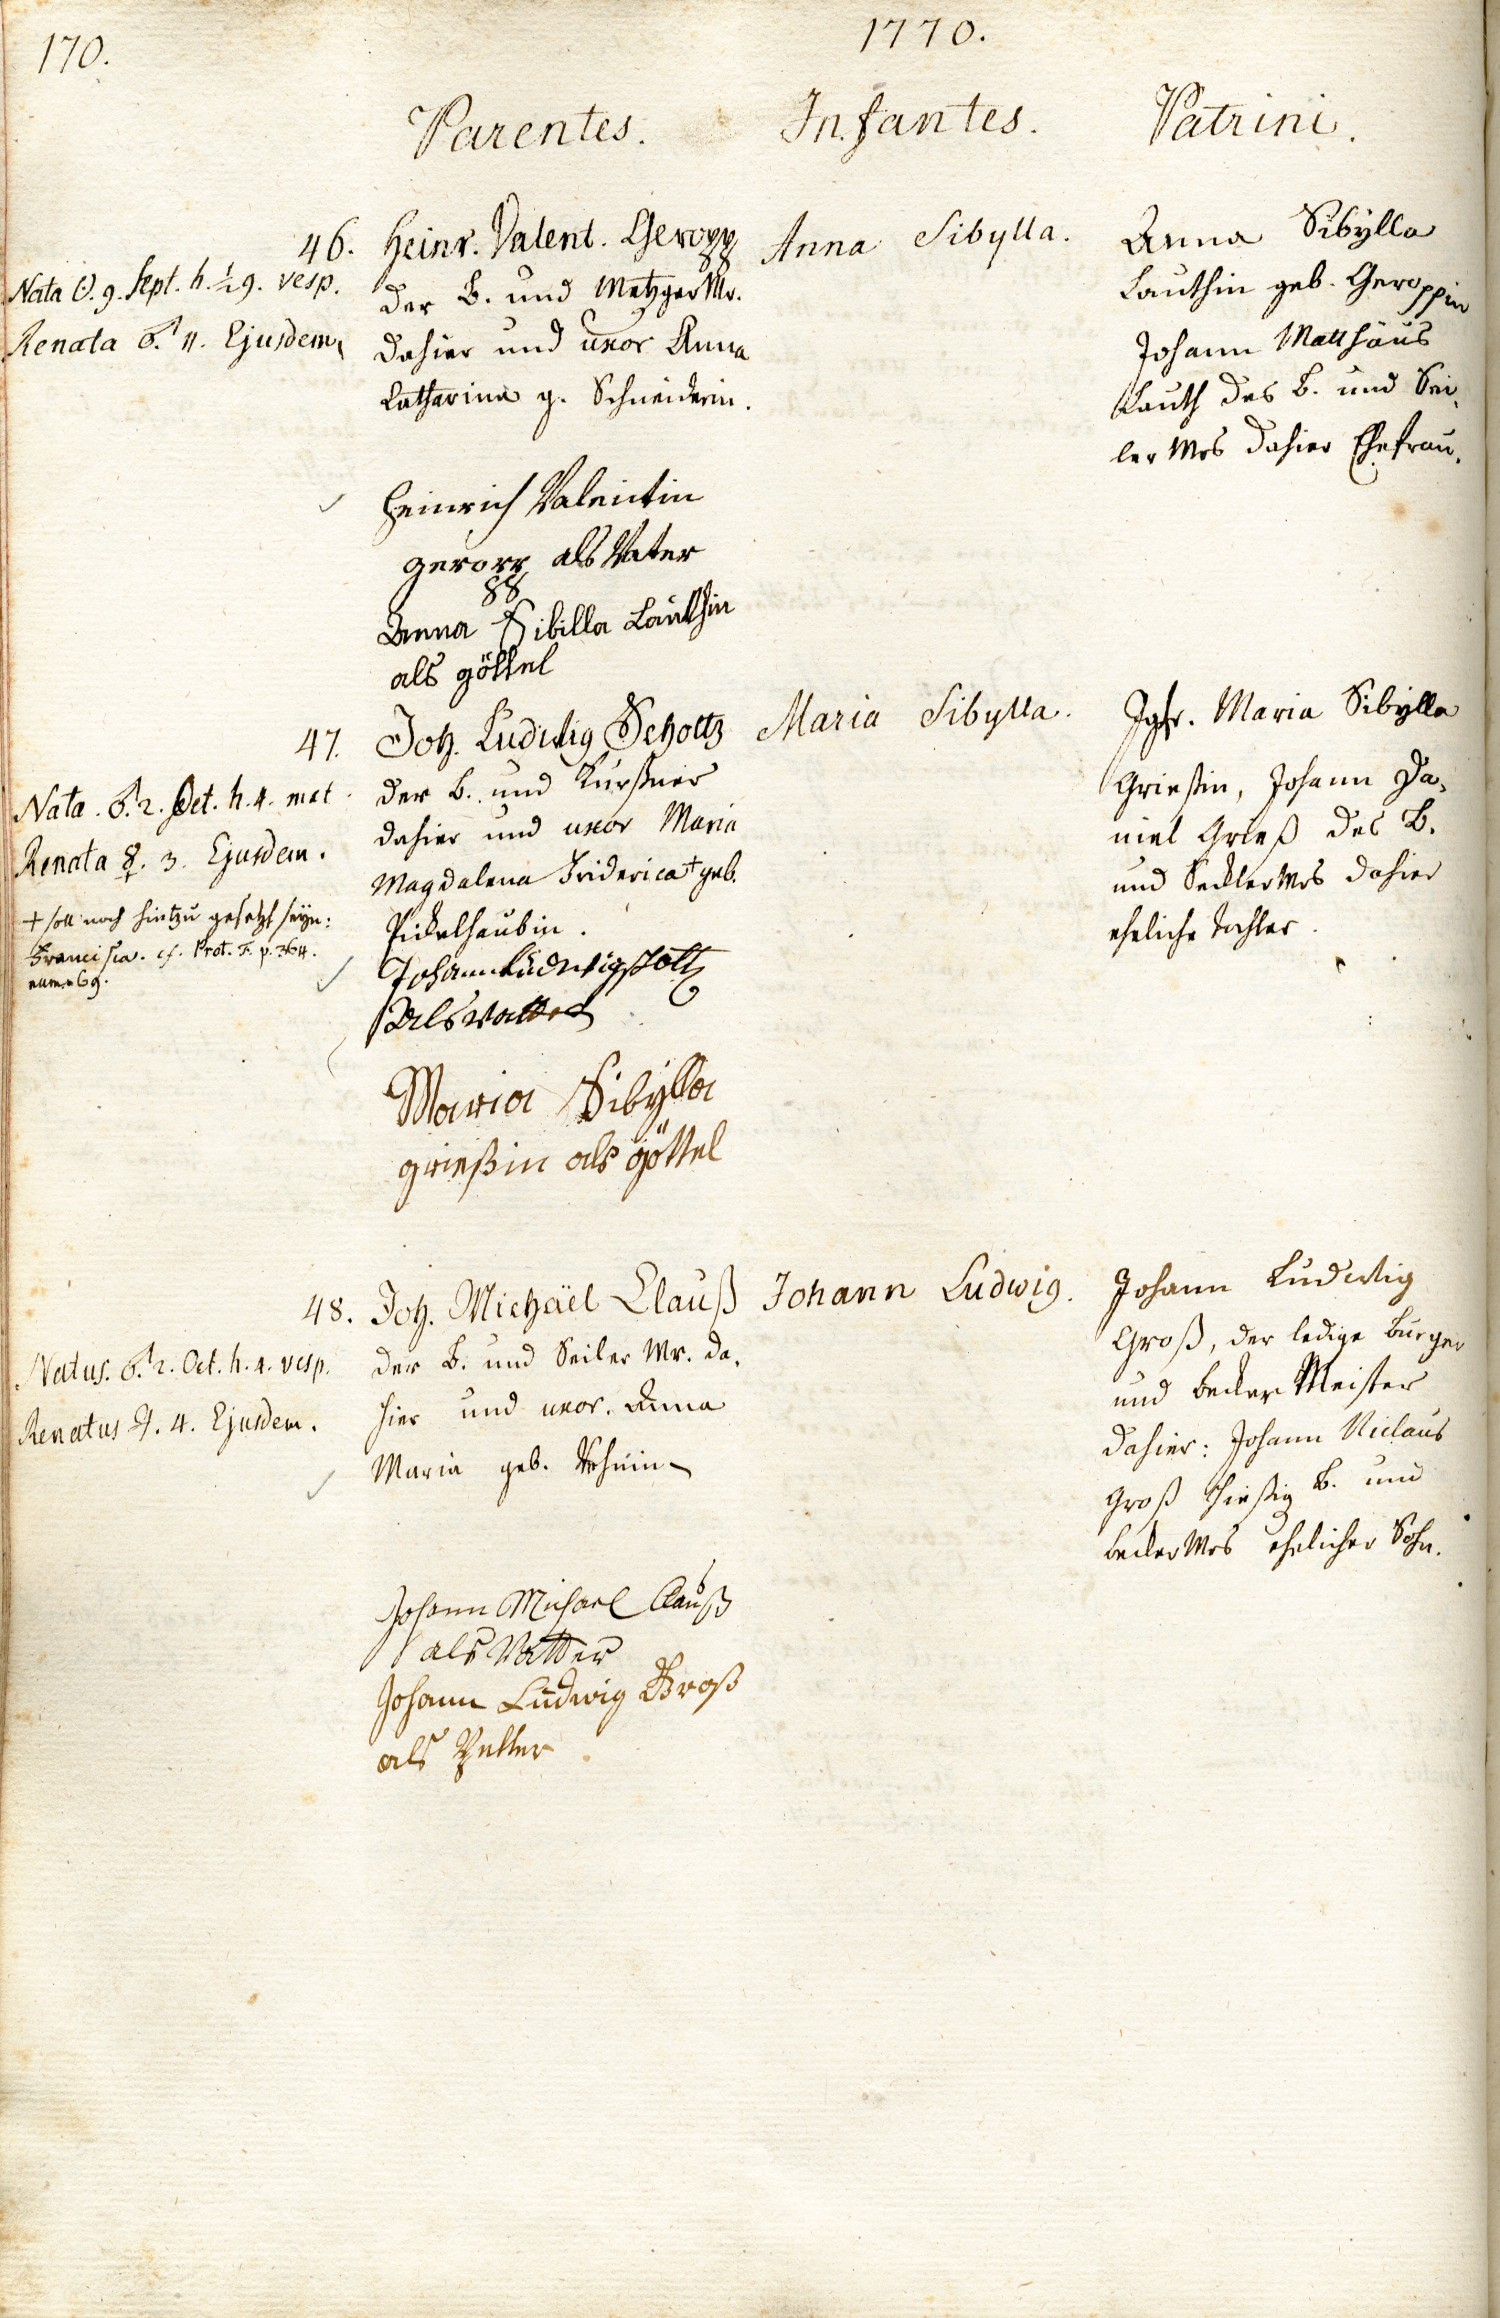 170.
1770.
Parentes. Infantes. Patrini.
46.
Nata ☉. 9. Sept. h. ½ 9. vesp.
Renata ♂. 11. Ejusdem.
Heinr. Valent. Geropp
der B. und Metzger Mr.
dahier und uxor Anna
Catharina g. Schneiderin.
Heinrich Valentin
geropp als Vater
Anna Sibilla Lauthin
als göttel
Anna Sibylla.
Anna Sibylla
Lauthin geb. Geroppin
Johann Matthäus
Lauth des B. und Sei-
ler Mrs dahier Ehefrau.
47.
Nata. ♂. 2. Oct. h. 4. mat.
Renata ☿. 3. Ejusdem.
+ soll noch hintzu gesetzt seyn:
Francisca. cf. Prot. F. p. 364.
num. 69.
Joh. Ludwig Scholtz
der B. und Kürßner
dahier und uxor Maria
Magdalena Friderica + geb.
Pickelhaubin.
Johann Ludwig scholtz
Als vatter
Maria Sibylla
grießin als göttel
Maria Sibylla.
Jgfr. Maria Sibylla
Grießin, Johann Da-
niel Grieß des B.
und Seckler Mrs dahier
eheliche Tochter.
48.
Natus. ♂. 2. Oct. h. 4. vesp.
Renatus ♃. 4. Ejusdem.
Joh. Michaël Clauß
der B. und Seiler Mr. da-
hier und uxor. Anna
Maria geb.
Johann Michael Clauß
als Vatter
Johann Ludwig Groß
als Petter
Johann Ludwig.
Johann Ludwig
Groß, der ledige Burger
und becker Meister
dahier: Johann Niclaus
Groß hießig B. und
becker Mrs ehelicher Sohn.